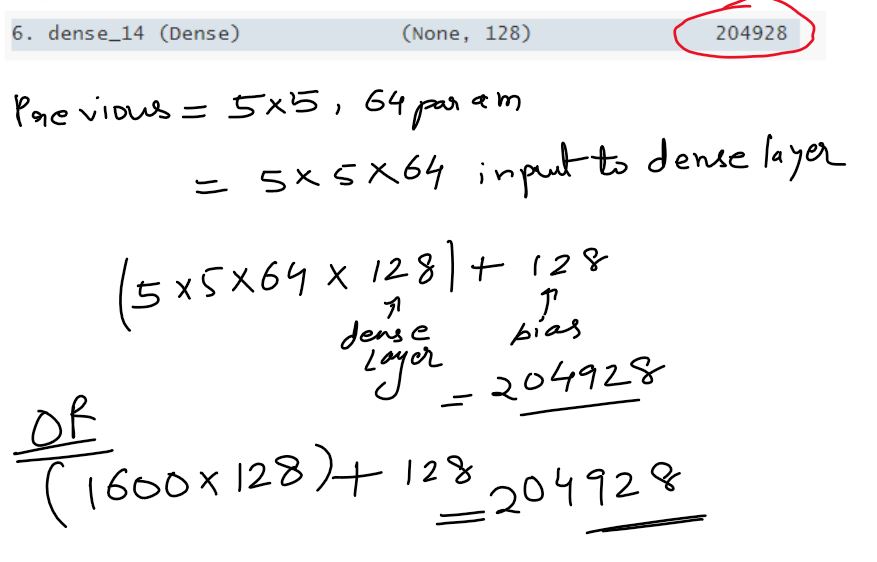 6. dense_14 (Dense) (None, 128) 204928
Previous = 5x5, 64 param
= 5x5x64 input to dense layer
(5x5x64 x 128) + 128
↑ ↑
dense bias
Layer
= 204928
OR
(1600x128) + 128 = 204928